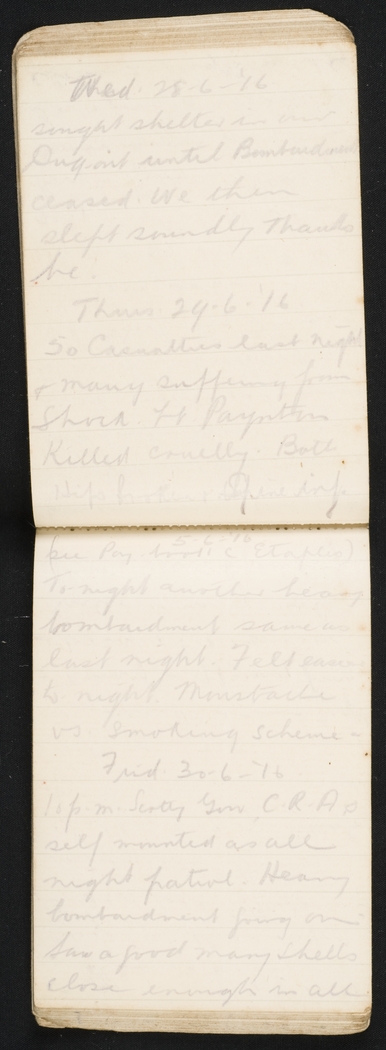 Wed. 28-6-'16
sought shelter in our
Dugout until Bombardment
ceased. We then
slept soundly Thanks
be.
Thurs 29-6-'16
50 Casualties last night
& many suffering from
Shock. Lt Paynton
Killed cruelly. Both
Hips broken & Spine
5-6-'16
(see Pay book @ Etaples)
To-night another heavy
bombardment same as
last night. Felt easier
to night. Moustache
vs Smoking scheme -
Frid 30-6-'16
10 p.m. Scotty Gow, C.R.A &
self mounted as all
night patrol. Heavy
bombardment going on
Saw a good many shells
close enough in all